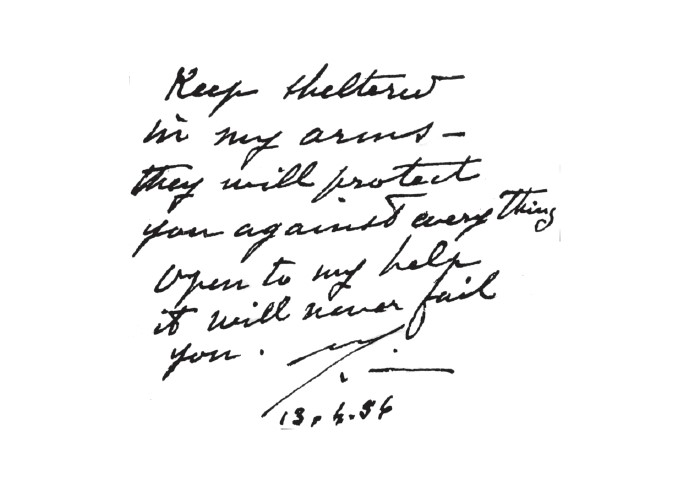 Keep sheltered
in my arms -
they will protect
you against everything
open to my help
it will never fail
you.
13.4.56